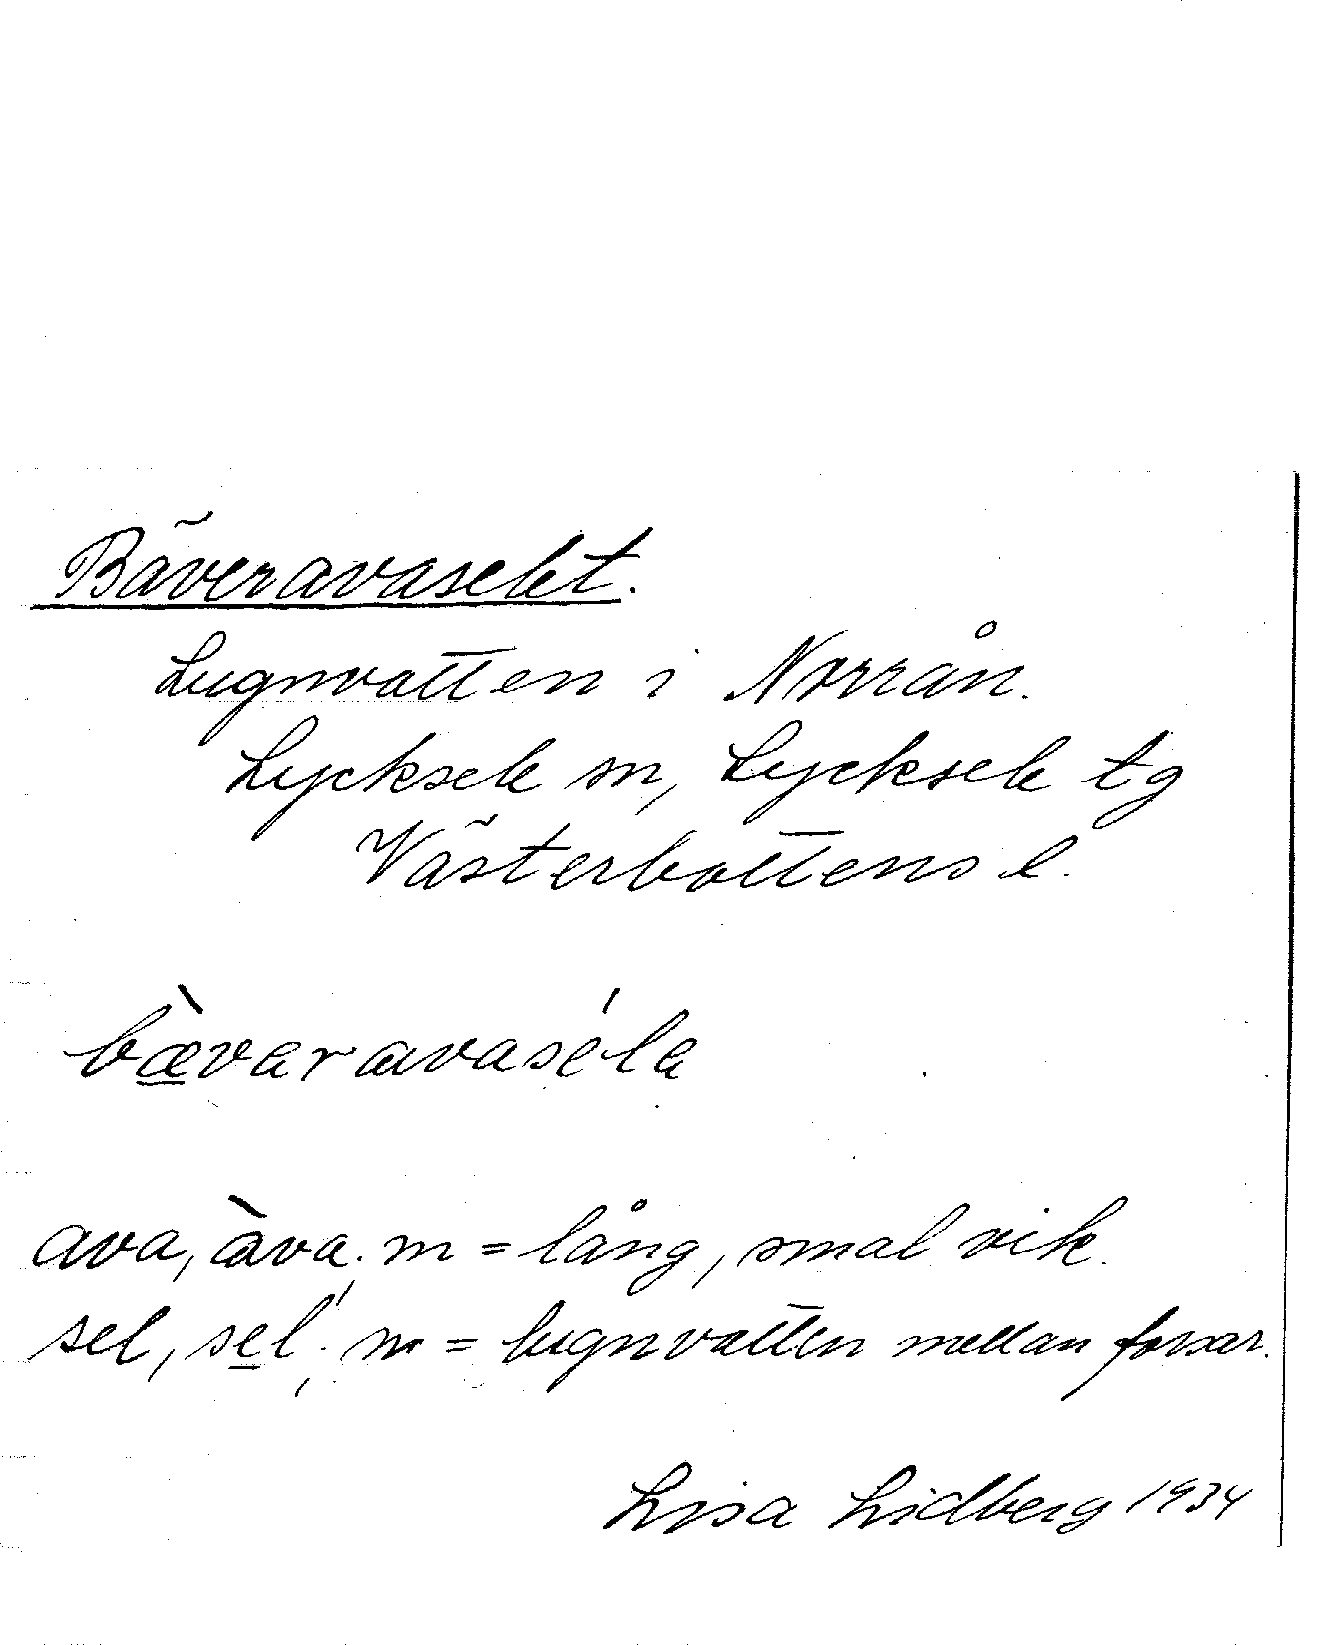 Bäveravaselet.
Lugnvatten i Norrån.
Lycksele sn, Lycksele tg
Västerbottens l.
bæ̀varavaséla
ava, àva. m = lång, smal vik.
sel, sel'; n = lugnvatten mellan forsar.
Lisa Lidberg 1934